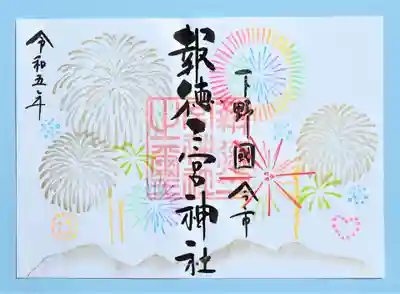 下野國 今市
報徳二宮神社
令和五年